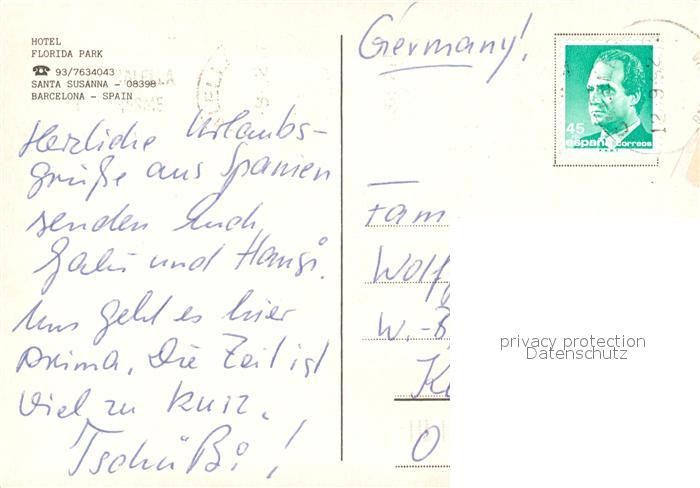 HOTEL
FLORIDA PARK
☎ 93/7634043
SANTA SUSANNA - 08398
BARCELONA - SPAIN
Germany!
45
españa correos
Herzliche Urlaubs-
grüße aus Spanien
senden Euch
Gabi und Hansi.
Uns geht es hier
prima. Die Zeit ist
viel zu kurz.
Tschüßi!
Fam
Wolf
W.-
K
O
privacy protection
Datenschutz